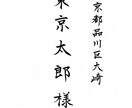 京都品川区大崎
東京太郎様